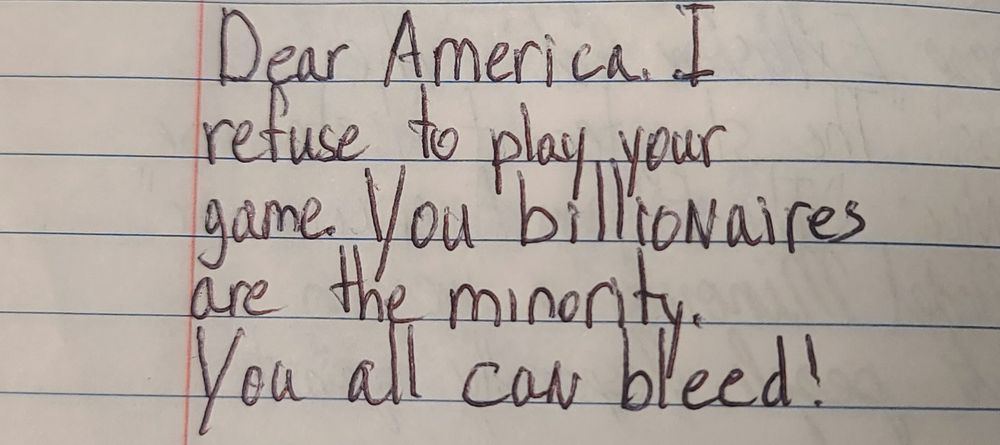 Dear America. I
refuse to play your
game. You billionaires
are the minority.
You all can bleed!